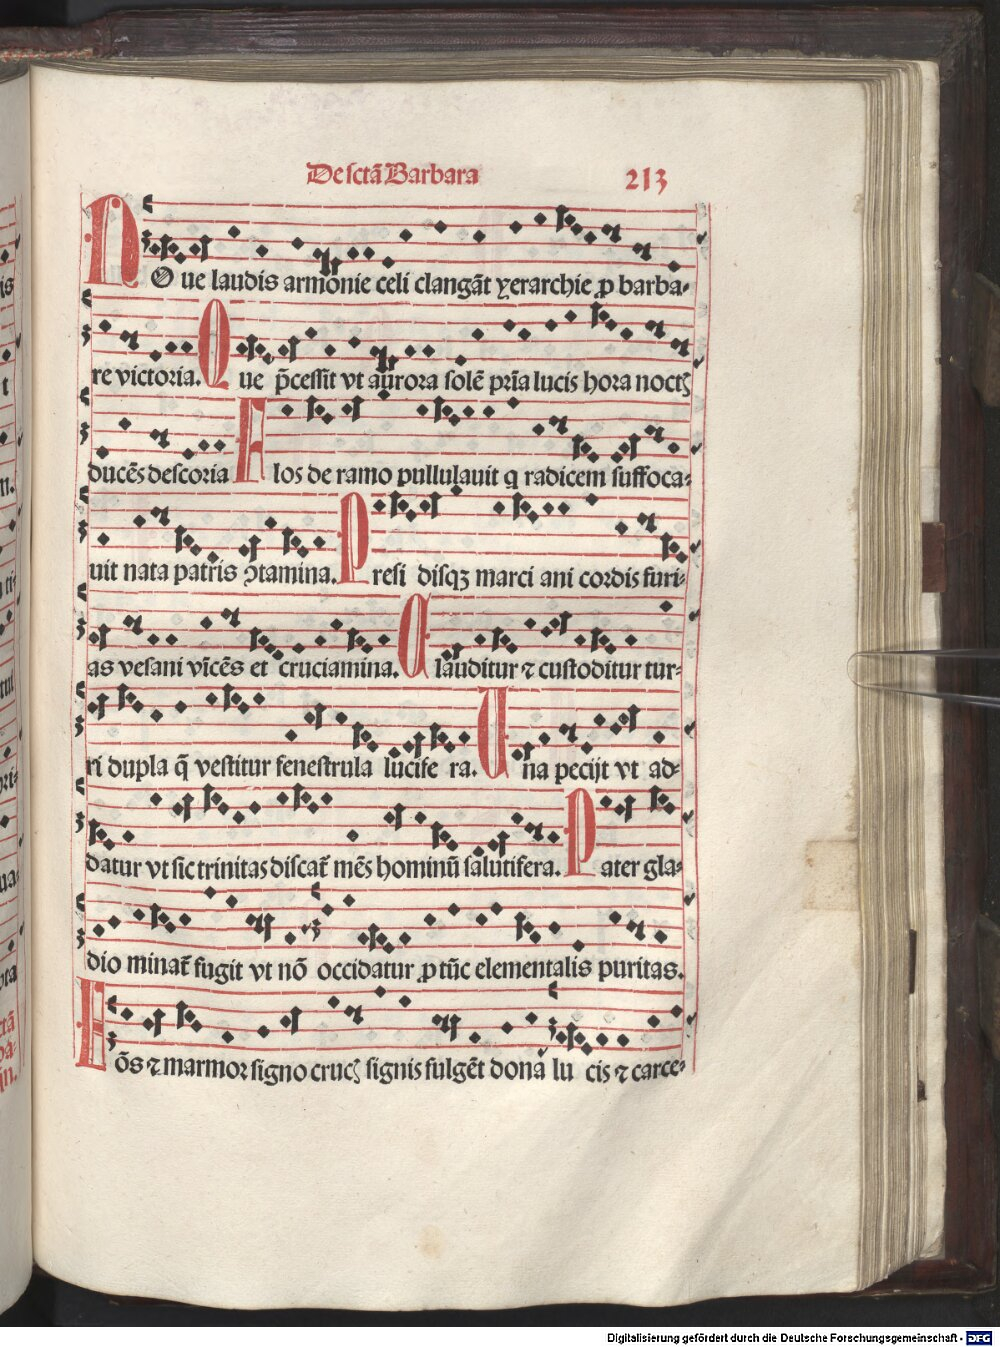 De sctā Barbara 213
NOue laudis armonie celi clangāt yerarchie ꝓ barba-
re victoria. Que p̄cessit vt aurora solē pria lucis hora noctꝭ
ducēs de scoria Flos de ramo pullulauit q radicem suffoca-
uit nata patris ꝯtamina. Presi disqꝫ marci ani cordis furi-
as vesani vīcēs et cruciamina. Clauditur ⁊ custoditur tur-
ri dupla q̄ vestitur fenestrula lucife ra. Una pecijt vt ad-
datur vt sic trinitas discat᷑ mēs hominū salutifera. Pater gla-
dio minat᷑ fugit vt nō occidatur ꝓ tūc elementalis puritas.
Fōs ⁊ marmor signo crucꝭ signis fulgēt dona lu cis ⁊ carce-
Digitalisierung gefördert durch die Deutsche Forschungsgemeinschaft - DFG